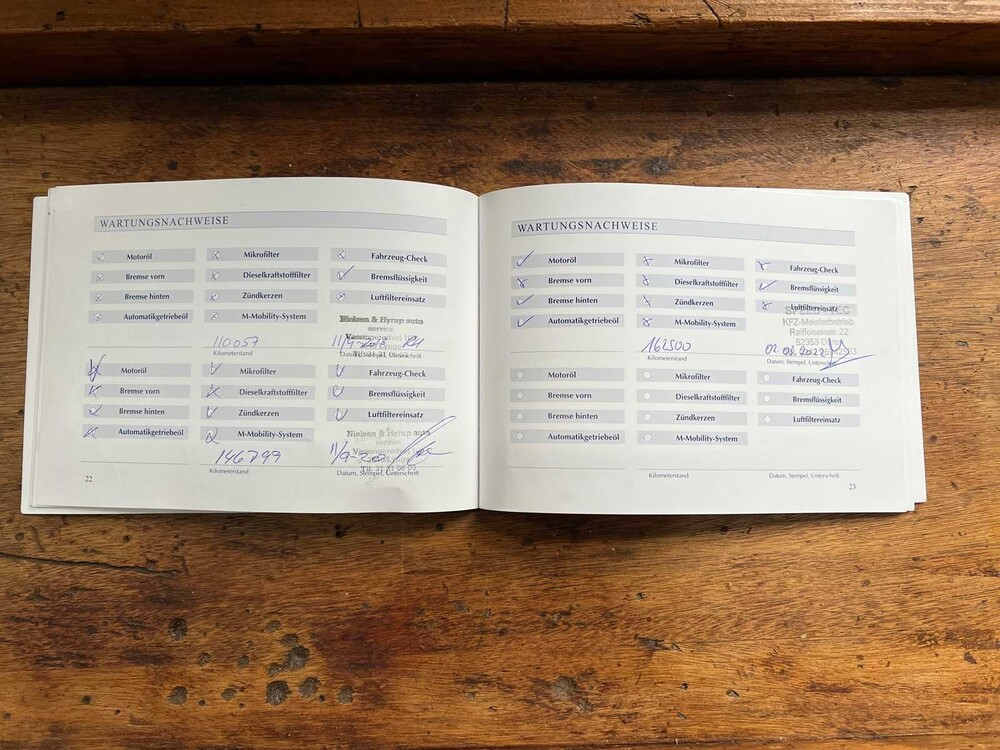 WARTUNGSNACHWEISE
Motoröl Mikrofilter Fahrzeug-Check
Bremse vorn Dieselkraftstofffilter Bremsflüssigkeit
Bremse hinten Zündkerzen Luftfiltereinsatz
Automatikgetriebeöl M-Mobility-System
Nielsen & Hyrup auto
service
110057
Kilometerstand Datum, Stempel, Unterschrift
Motoröl Mikrofilter Fahrzeug-Check
Bremse vorn Dieselkraftstofffilter Bremsflüssigkeit
Bremse hinten Zündkerzen Luftfiltereinsatz
Automatikgetriebeöl M-Mobility-System
Nielsen & Hyrup auto
service
146799
Kilometerstand Datum, Stempel, Unterschrift
22
WARTUNGSNACHWEISE
Motoröl Mikrofilter Fahrzeug-Check
Bremse vorn Dieselkraftstofffilter Bremsflüssigkeit
Bremse hinten Zündkerzen Luftfiltereinsatz
Automatikgetriebeöl M-Mobility-System
KFZ-Meisterbetrieb
Raiffeisenstr. 22
52353
162500
Kilometerstand Datum, Stempel, Unterschrift
Motoröl Mikrofilter Fahrzeug-Check
Bremse vorn Dieselkraftstofffilter Bremsflüssigkeit
Bremse hinten Zündkerzen Luftfiltereinsatz
Automatikgetriebeöl M-Mobility-System
Kilometerstand Datum, Stempel, Unterschrift
23